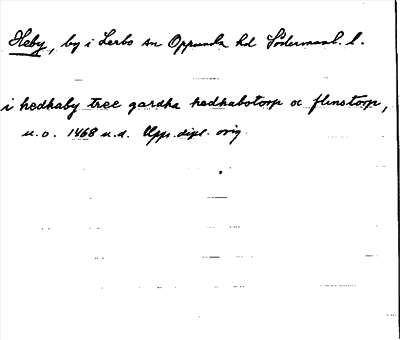 Heby, by i Lerbo sn Oppunda hd Södermanl. l.
i hedhaby tree gardha hedhabotorp oc flinstorp,
u. o. 1468 u. d. Upps. dipl. orig.